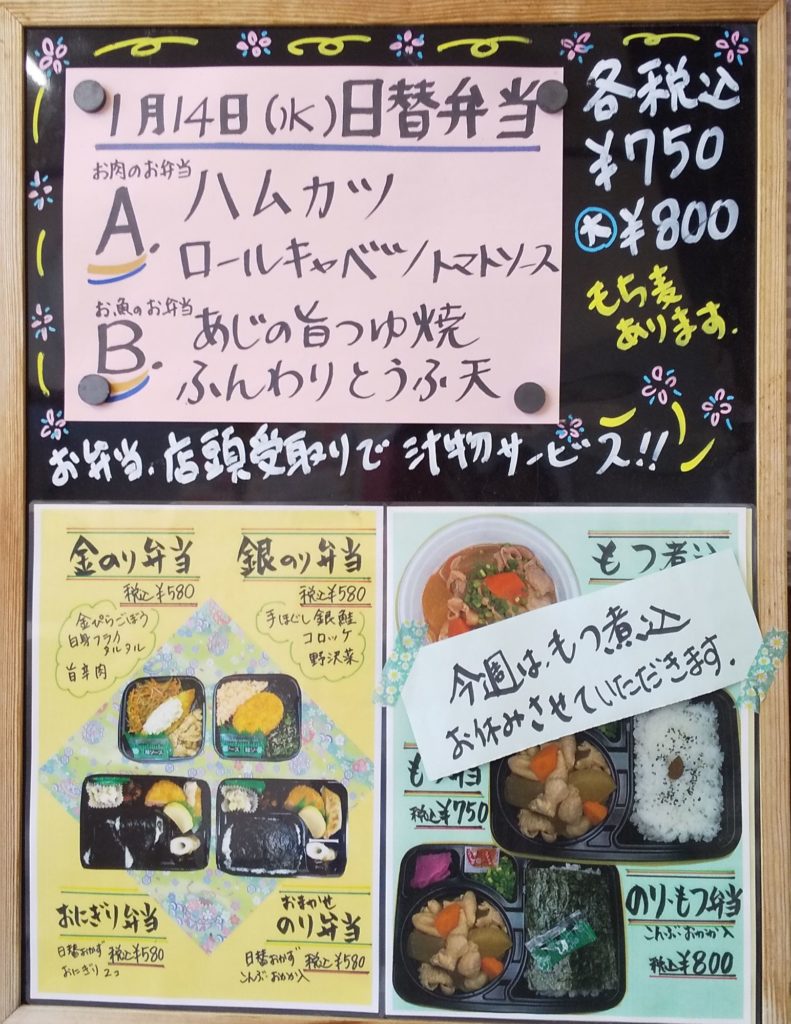 1月14日(水)日替弁当
お肉のお弁当
A.
ハムカツ
ロールキャベツ/トマトソース
お魚のお弁当
B.
あじの旨つゆ焼
ふんわりとうふ天
各税込
¥750
大 ¥800
もち麦
あります.
お弁当、店頭受取りで 汁物サービス!!
金のり弁当
税込¥580
金ぴらごぼう
白身フライ
タルタル
旨辛肉
銀のり弁当
税込¥580
手ほぐし銀鮭
コロッケ
野沢菜
おにぎり弁当
日替おかず 税込¥580
おにぎり2コ
おまかせ
のり弁当
日替おかず 税込¥580
こんぶ・おかか入
もつ煮込
今週は、もつ煮込
お休みさせていただきます.
税込¥750
のり・もつ弁当
こんぶ・おかか入
税込¥800